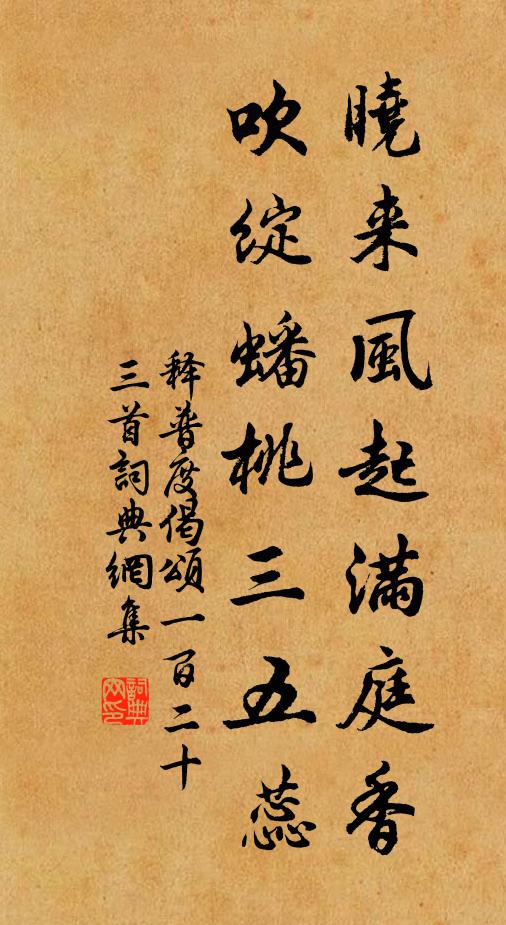 曉来風起滿庭香
吹綻蟠桃三五蕊
释普度偈頌一百二十
三首詞典網集
詞典網印